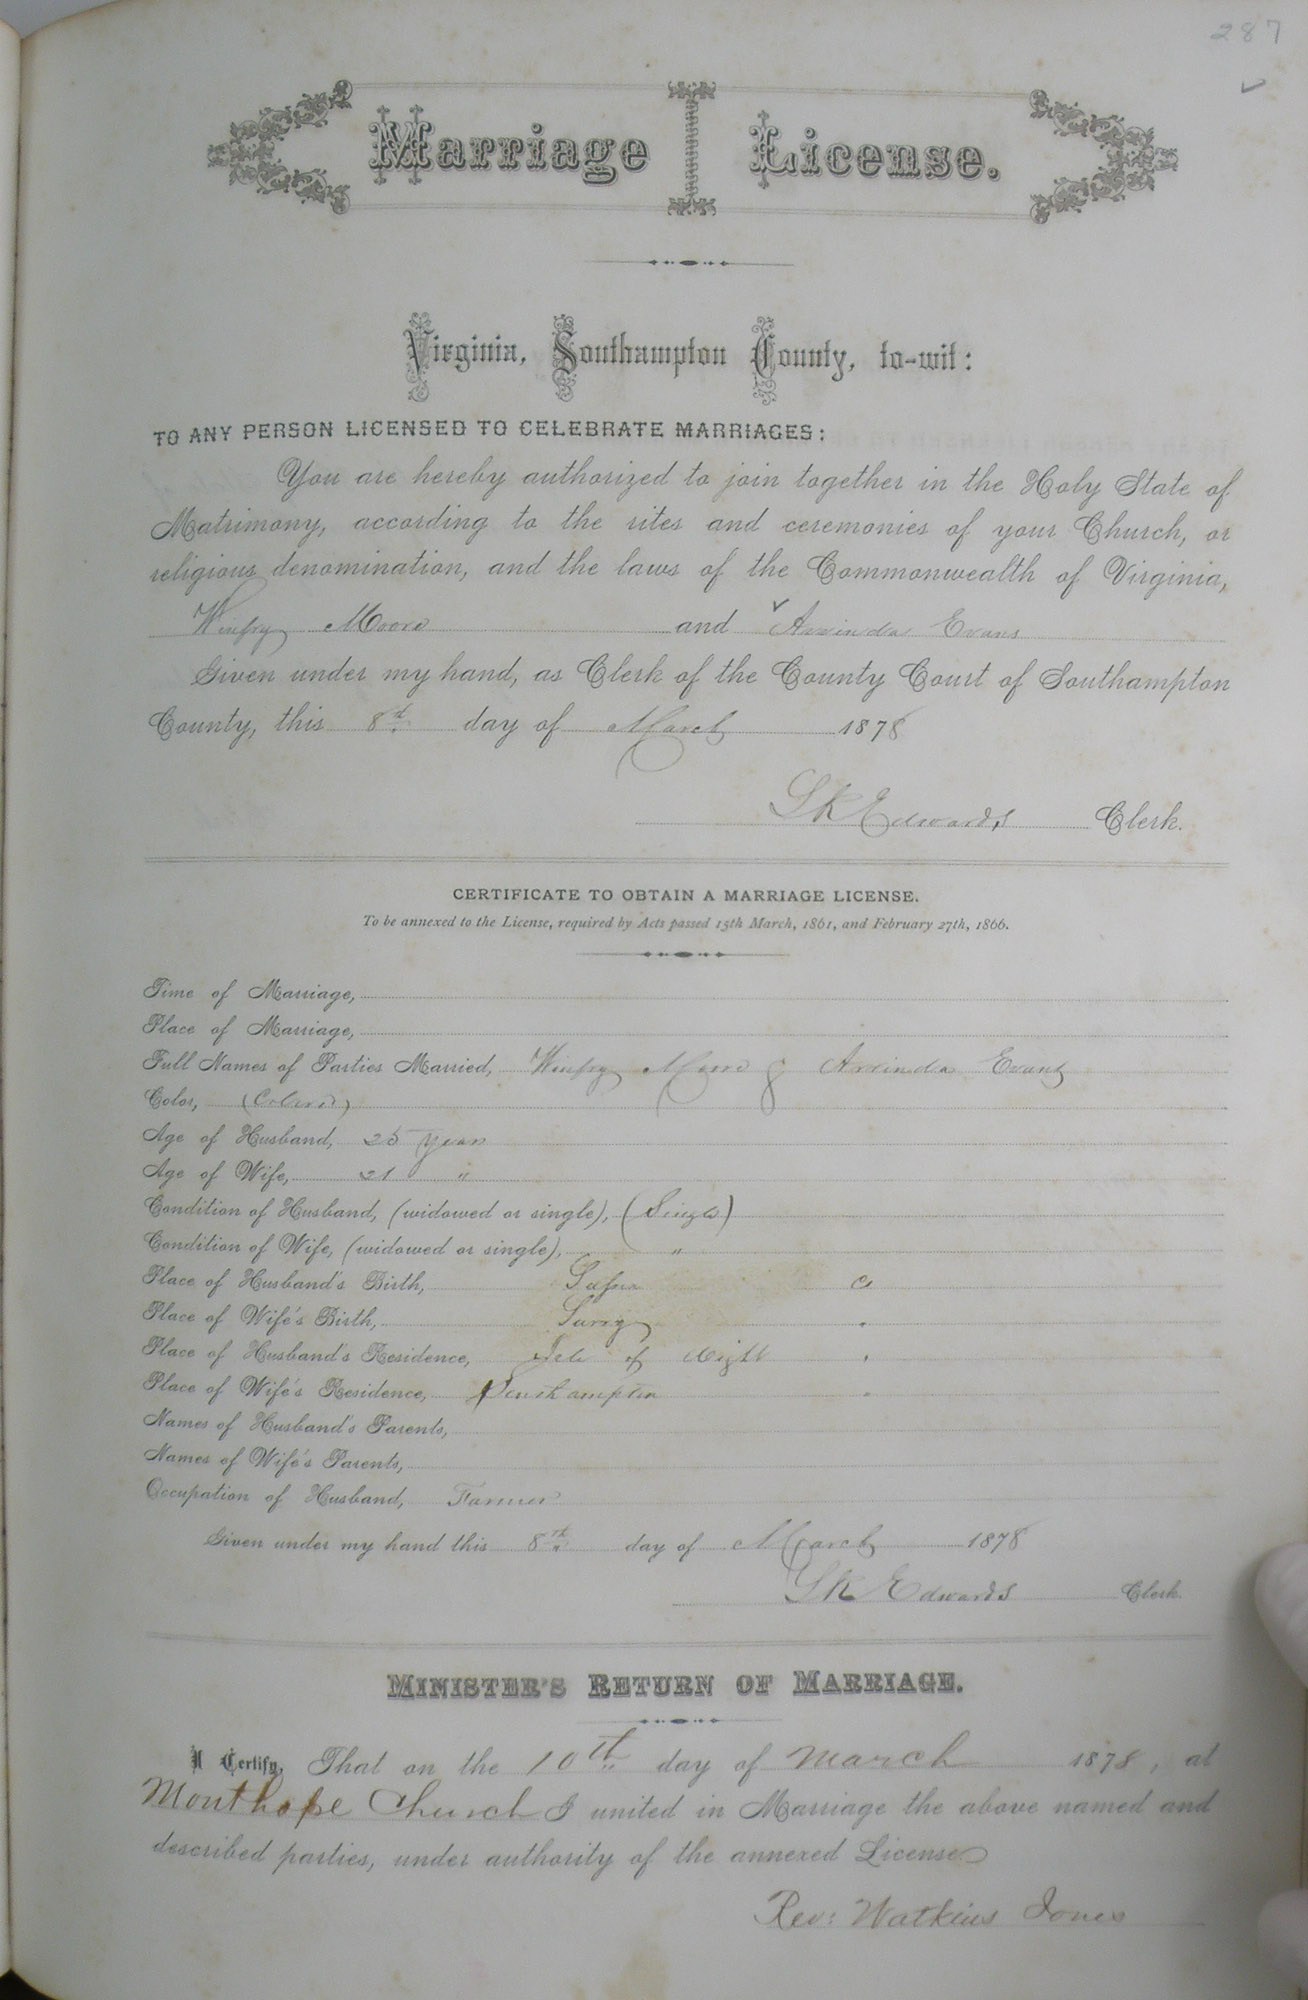 287
Marriage License.
Virginia, Southampton County, to-wit:
TO ANY PERSON LICENSED TO CELEBRATE MARRIAGES:
You are hereby authorized to join together in the Holy State of
Matrimony, according to the rites and ceremonies of your Church, or
religious denomination, and the laws of the Commonwealth of Virginia,
Winfry Moore and Arvinda Evans
Given under my hand, as Clerk of the County Court of Southampton
County, this 8th day of March 1878
Edwards, Clerk.
CERTIFICATE TO OBTAIN A MARRIAGE LICENSE.
To be annexed to the License, required by Acts passed 15th March, 1861, and February 27th, 1866.
Time of Marriage,
Place of Marriage,
Full Names of Parties Married, Winfry Moore & Arvinda Evans
Color, (Colored)
Age of Husband, 25 years
Age of Wife, 21 "
Condition of Husband, (widowed or single), (Single)
Condition of Wife, (widowed or single), "
Place of Husband's Birth,
Place of Wife's Birth, Surry
Place of Husband's Residence, Isle of Wight
Place of Wife's Residence, Southampton
Names of Husband's Parents,
Names of Wife's Parents,
Occupation of Husband, Farmer
Given under my hand this 8th day of March 1878
Edwards Clerk.
MINISTER'S RETURN OF MARRIAGE.
I Certify, That on the 10th day of March 1878, at
Mounthope Church I united in Marriage the above named and
described parties, under authority of the annexed License
Rev: Watkins Jones